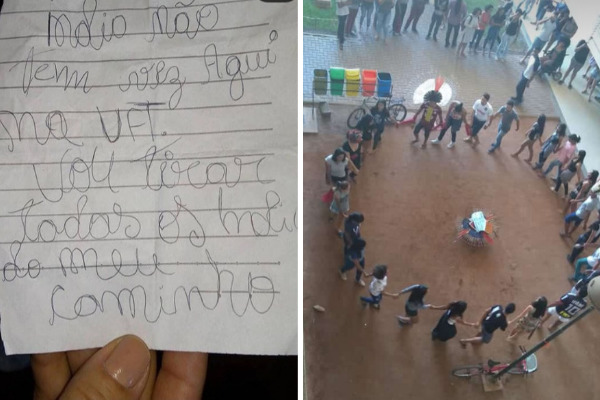 Índio não
tem vez Aqui
na UFT.
Vou tirar
todos os Índi
do meu
caminho